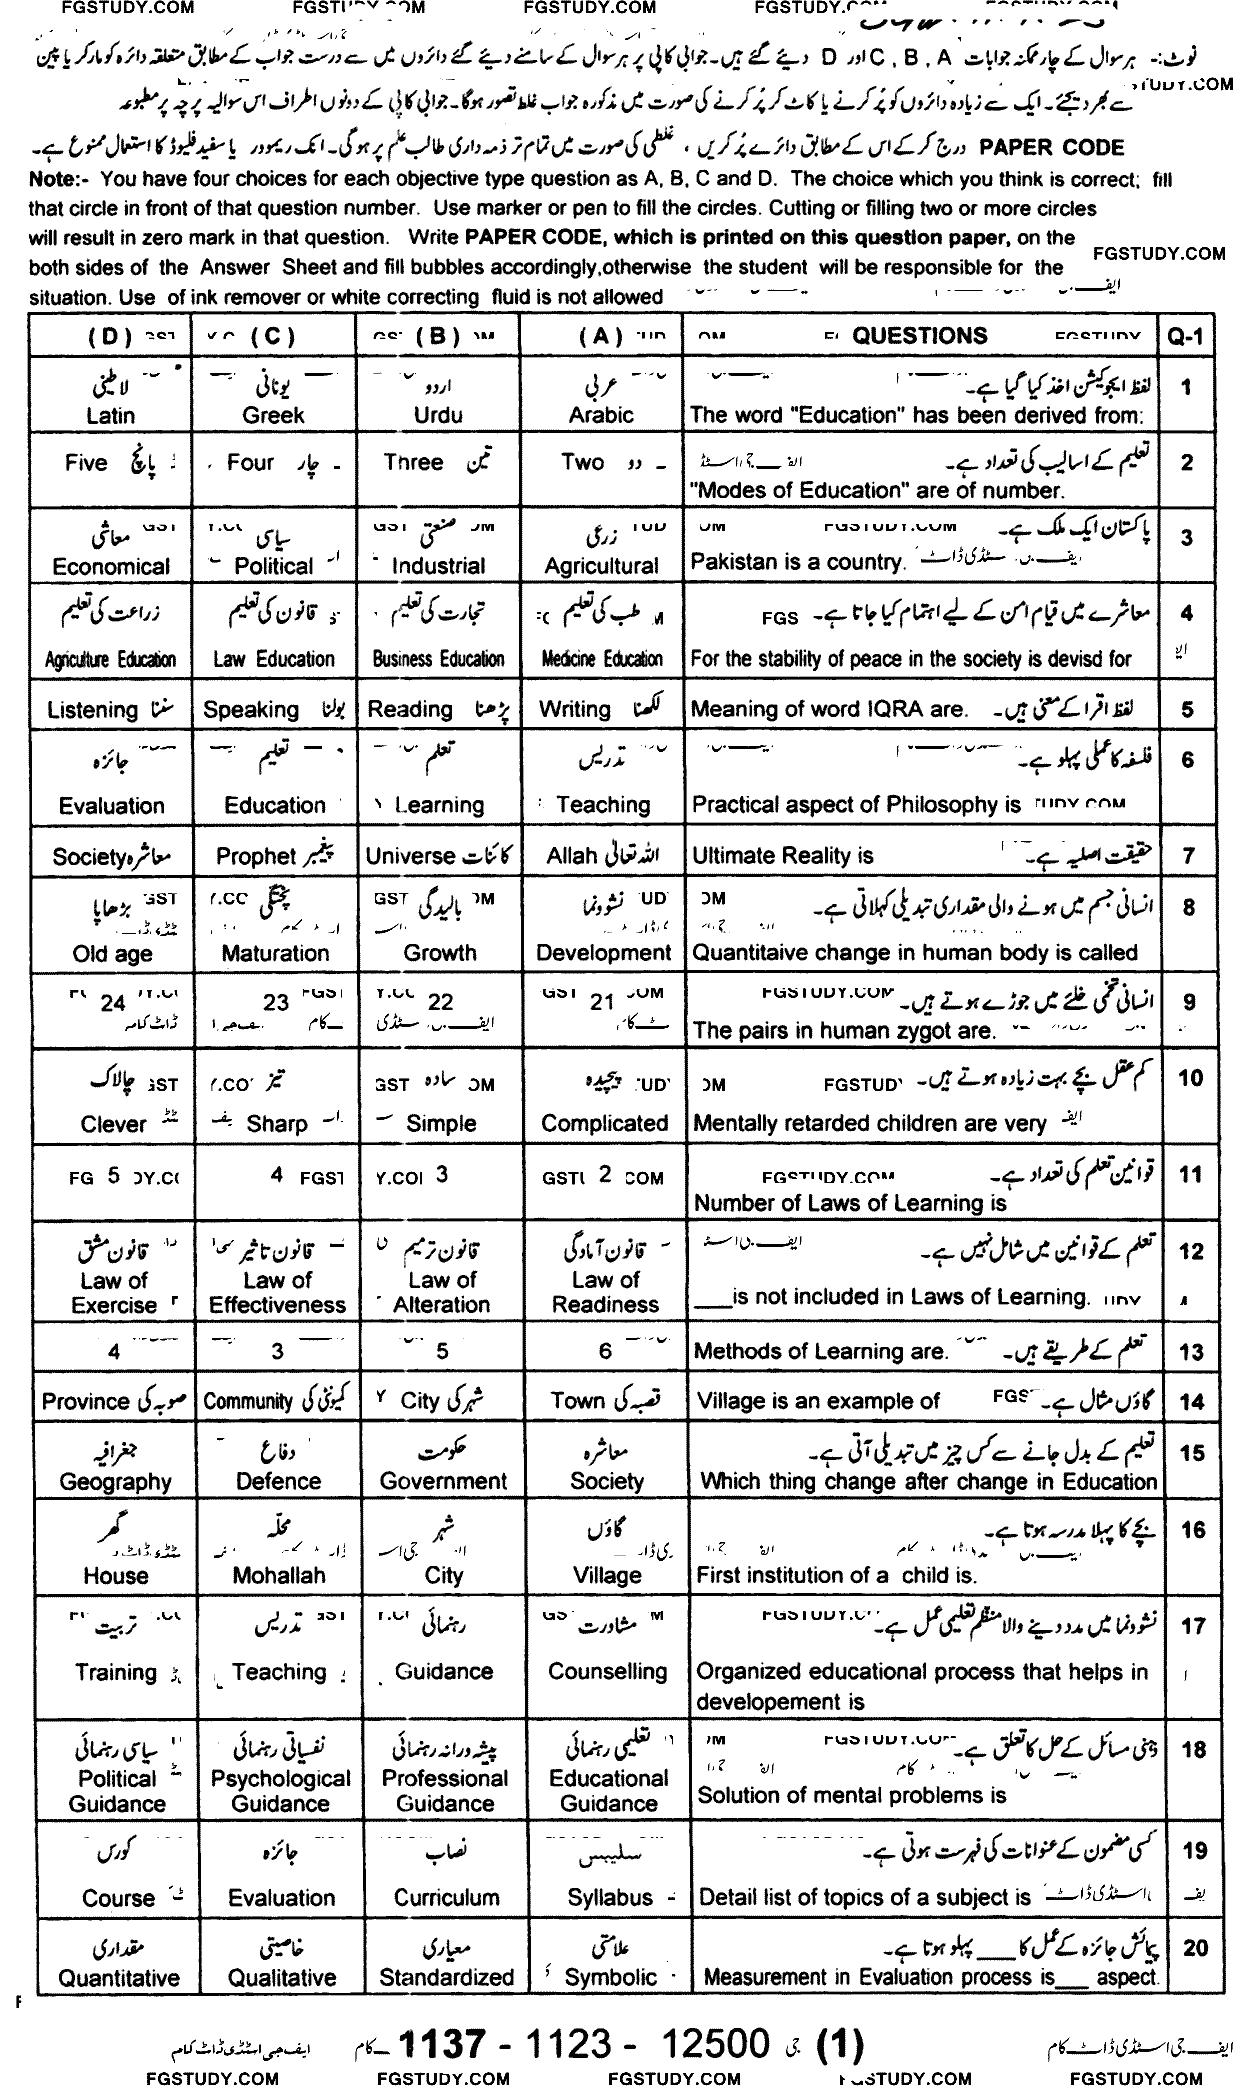 FGSTUDY.COM FGSTUDY.COM FGSTUDY.COM
نوٹ:- ہر سوال کے چار ممکنہ جوابات C , B , A اور D دیئے گئے ہیں۔ جوابی کاپی پر ہر سوال کے سامنے دیئے گئے دائروں میں سے درست جواب کے مطابق متعلقہ دائرہ کو مارکر یا پین
سے بھر دیجئے۔ ایک سے زیادہ دائروں کو پُر کرنے یا کاٹ کر پُر کرنے کی صورت میں مذکورہ جواب غلط تصور ہوگا۔ جوابی کاپی کے دونوں اطراف اس سوالیہ پرچہ پر مطبوعہ
PAPER CODE درج کر کے اس کے مطابق دائرے پُر کریں ، غلطی کی صورت میں تمام تر ذمہ داری طالب علم پر ہوگی۔ انک ریموور یا سفید فلیوڈ کا استعمال ممنوع ہے۔
Note:- You have four choices for each objective type question as A, B, C and D. The choice which you think is correct; fill
that circle in front of that question number. Use marker or pen to fill the circles. Cutting or filling two or more circles
will result in zero mark in that question. Write PAPER CODE, which is printed on this question paper, on the
FGSTUDY.COM
both sides of the Answer Sheet and fill bubbles accordingly,otherwise the student will be responsible for the
situation. Use of ink remover or white correcting fluid is not allowed
(D) (C) (B) (A) QUESTIONS Q-1
لاطینی یونانی اردو عربی لفظ ایجوکیشن اخذ کیا گیا ہے۔ 1
Latin Greek Urdu Arabic The word "Education" has been derived from:
Five پانچ Four چار Three تین Two دو تعلیم کے اسالیب کی تعداد ہے۔ 2
"Modes of Education" are of number.
معاشی سیاسی صنعتی زرعی پاکستان ایک ملک ہے۔ 3
Economical Political Industrial Agricultural Pakistan is a country.
زراعت کی تعلیم قانون کی تعلیم تجارت کی تعلیم طب کی تعلیم معاشرے میں قیام امن کے لیے اہتمام کیا جاتا ہے۔ 4
Agriculture Education Law Education Business Education Medicine Education For the stability of peace in the society is devisd for
Listening سننا Speaking بولنا Reading پڑھنا Writing لکھنا Meaning of word IQRA are. لفظ اقرا کے معنی ہیں۔ 5
جائزہ تعلیم تعلم تدریس فلسفہ کا عملی پہلو ہے۔ 6
Evaluation Education Learning Teaching Practical aspect of Philosophy is
Society معاشرہ Prophet پیغمبر Universe کائنات Allah اللہ تعالیٰ Ultimate Reality is حقیقت اصلیہ ہے۔ 7
بڑھاپا پختگی بالیدگی نشوونما انسانی جسم میں ہونے والی مقداری تبدیلی کہلاتی ہے۔ 8
Old age Maturation Growth Development Quantitaive change in human body is called
24 23 22 21 FGSTUDY.COM انسانی تخمی خلئے میں جوڑے ہوتے ہیں۔ 9
The pairs in human zygot are.
چالاک تیز سادہ پیچیدہ کم عقل بچے بہت زیادہ ہوتے ہیں۔ 10
Clever Sharp Simple Complicated Mentally retarded children are very
5 4 3 2 قوانین تعلم کی تعداد ہے۔ 11
Number of Laws of Learning is
قانون مشق قانون تاثیر قانون ترمیم قانون آمادگی تعلم کے قوانین میں شامل نہیں ہے۔ 12
Law of Law of Law of Law of
Exercise Effectiveness Alteration Readiness ___is not included in Laws of Learning.
4 3 5 6 Methods of Learning are. تعلم کے طریقے ہیں۔ 13
Province صوبہ کی Community کمیونٹی کی City شہر کی Town قصبہ کی Village is an example of گاؤں مثال ہے۔ 14
جغرافیہ دفاع حکومت معاشرہ تعلیم کے بدل جانے سے کس چیز میں تبدیلی آتی ہے۔ 15
Geography Defence Government Society Which thing change after change in Education
گھر محلہ شہر گاؤں بچے کا پہلا مدرسہ ہوتا ہے۔ 16
House Mohallah City Village First institution of a child is.
تربیت تدریس رہنمائی مشاورت نشوونما میں مدد دینے والا منظم تعلیمی عمل ہے۔ 17
Training Teaching Guidance Counselling Organized educational process that helps in
developement is
سیاسی رہنمائی نفسیاتی رہنمائی پیشہ ورانہ رہنمائی تعلیمی رہنمائی ذہنی مسائل کے حل کا تعلق ہے۔ 18
Political Psychological Professional Educational
Guidance Guidance Guidance Guidance Solution of mental problems is
کورس جائزہ نصاب سلیبس کسی مضمون کے عنوانات کی فہرست ہوتی ہے۔ 19
Course Evaluation Curriculum Syllabus Detail list of topics of a subject is
مقداری خاصیتی معیاری علامتی پیمائش جائزہ کے عمل کا ___ پہلو ہوتا ہے۔ 20
Quantitative Qualitative Standardized Symbolic Measurement in Evaluation process is___ aspect.
ایف جی اسٹڈی ڈاٹ کام 1137 - 1123 - 12500 (1) ایف جی اسٹڈی ڈاٹ کام
FGSTUDY.COM FGSTUDY.COM FGSTUDY.COM FGSTUDY.COM